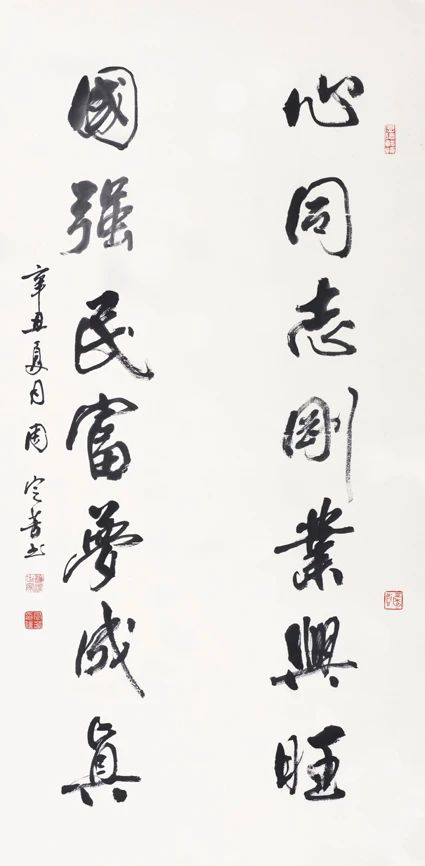 心同志剛業興旺
國强民富夢成真
辛丑夏月周定善书